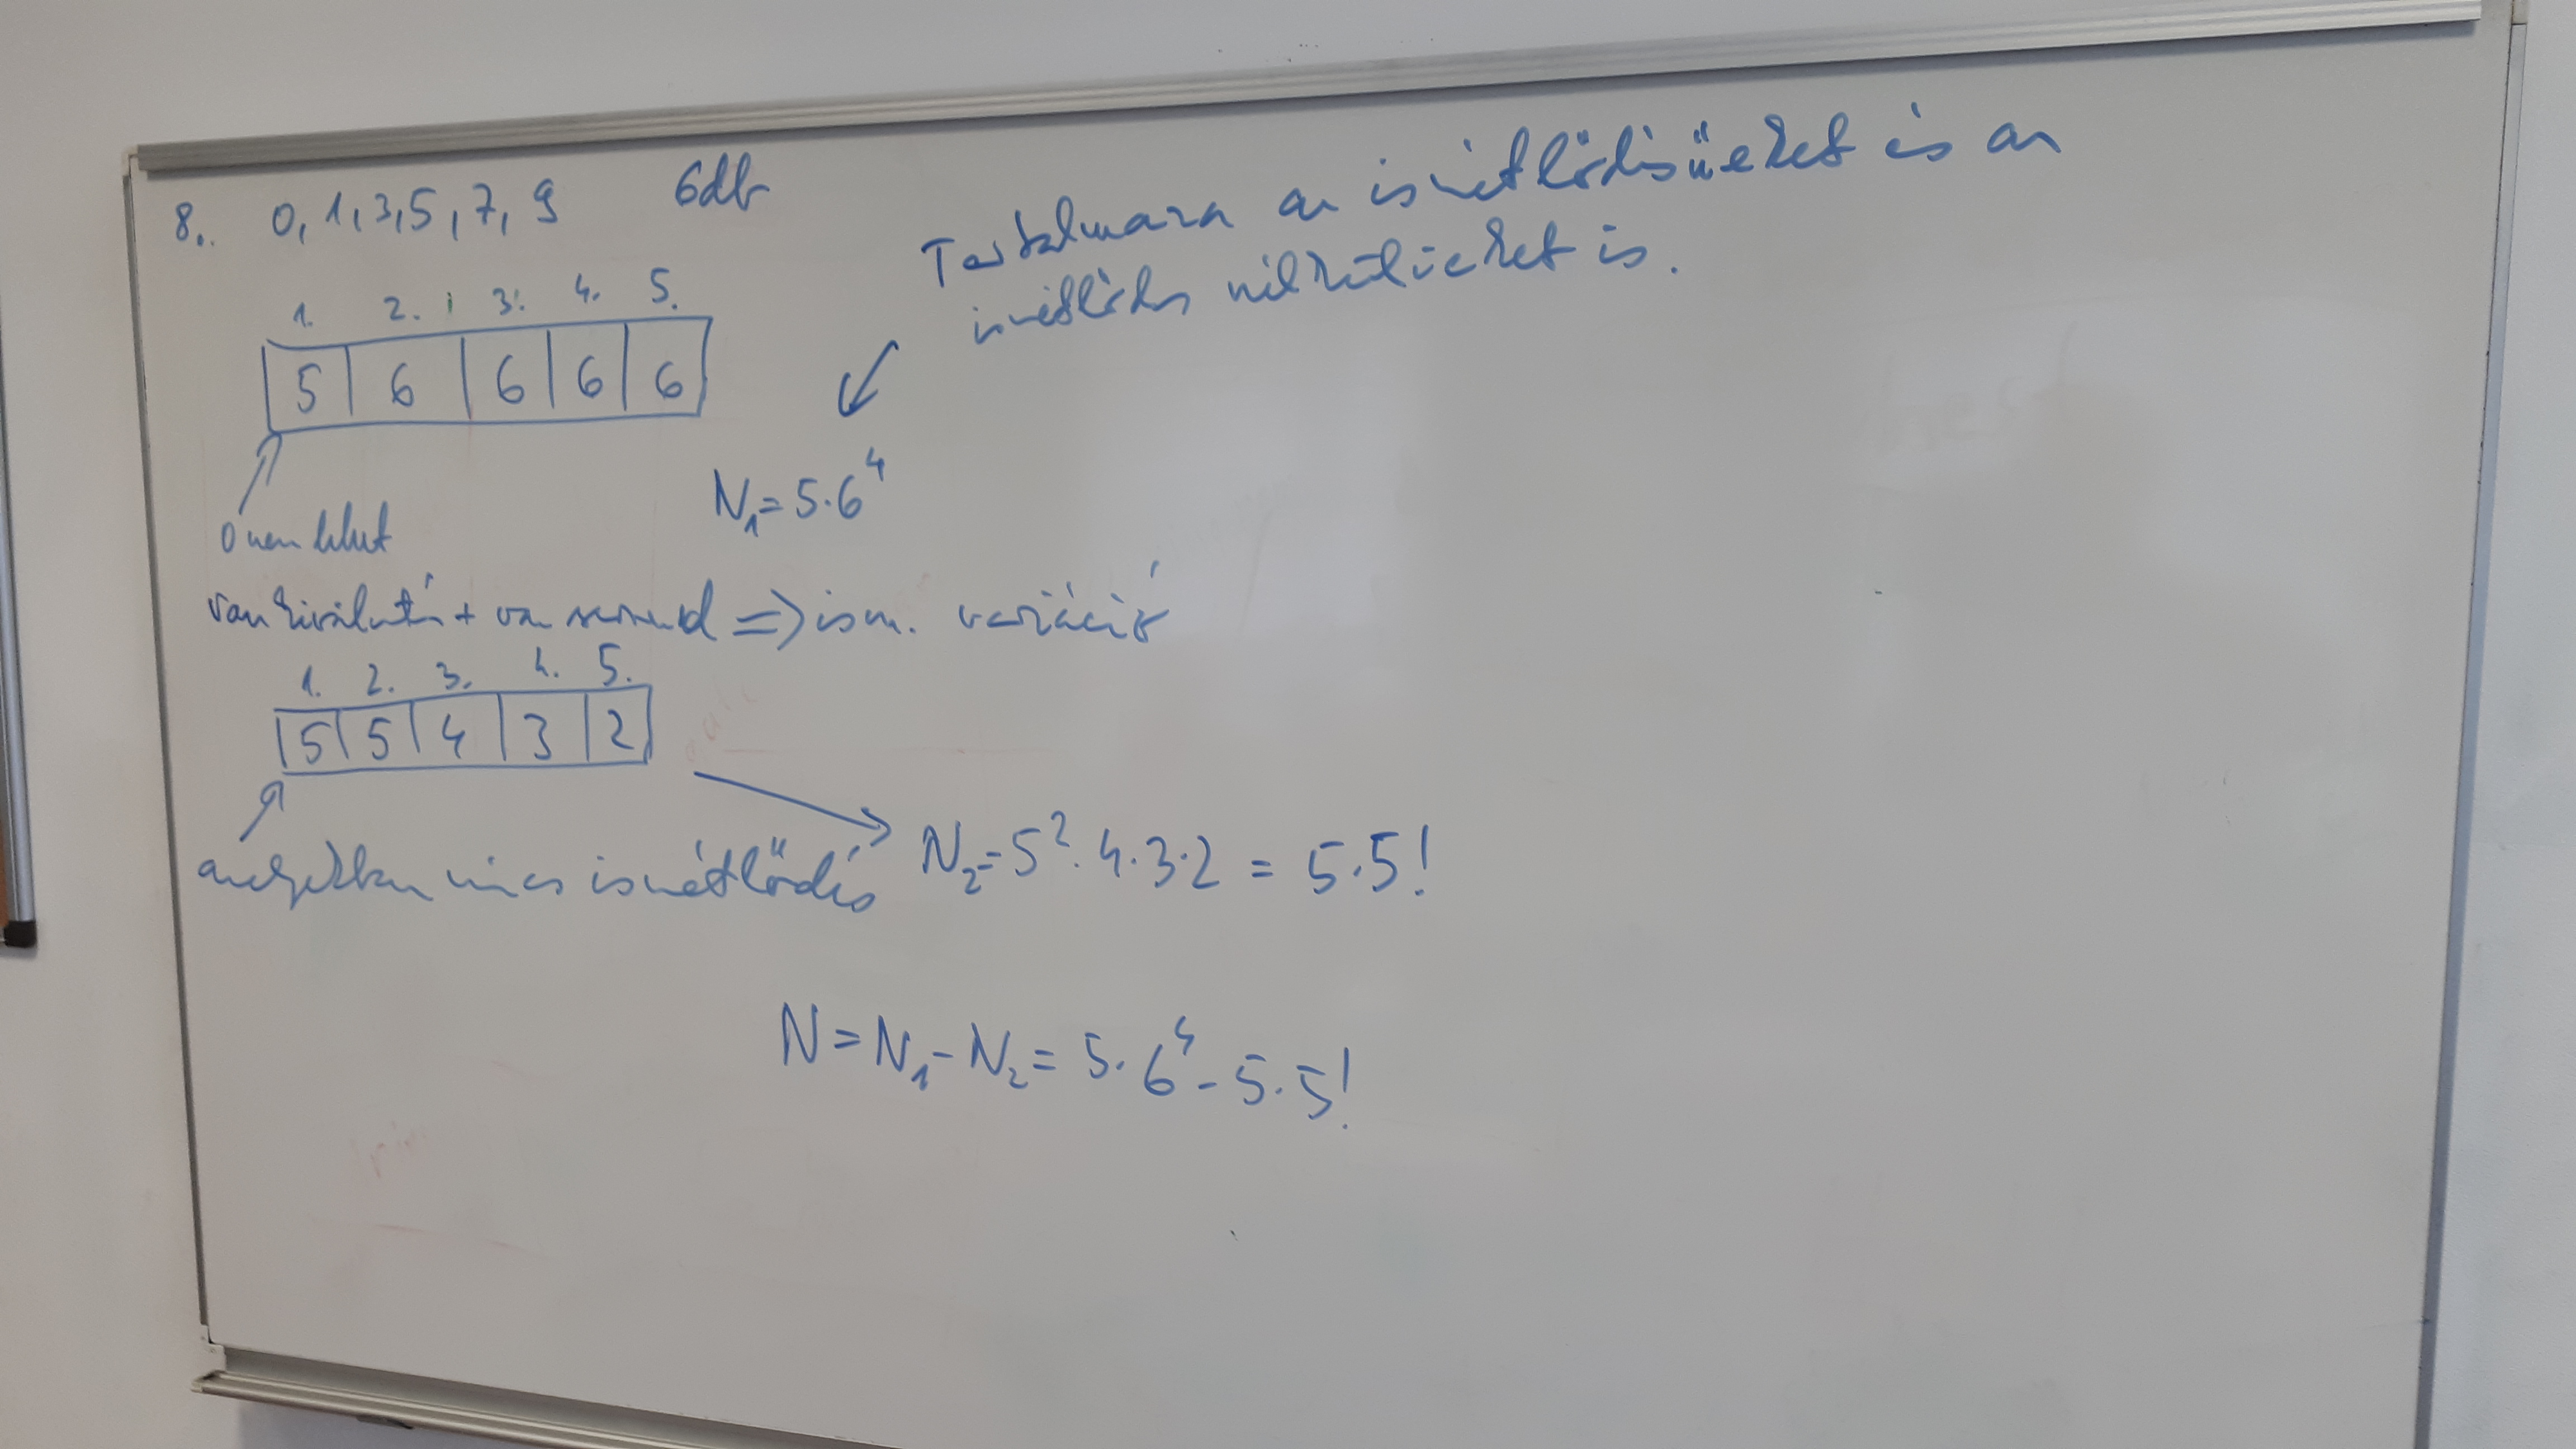 8. 0, 1, 3, 5, 7, 9 6db
Tartalmazza az ismétlődésűeket és az
ismétlődés nélkülieket is.
1. 2. 3. 4. 5.
5 6 6 6 6
N₁=5·6⁴
0 nem lehet
van kiválasztás + van sorrend ⇒ ism. variáció
1. 2. 3. 4. 5.
5 5 4 3 2
amelyekben nincs ismétlődés
N₂=5²·4·3·2 = 5·5!
N=N₁-N₂=5·6⁴-5·5!